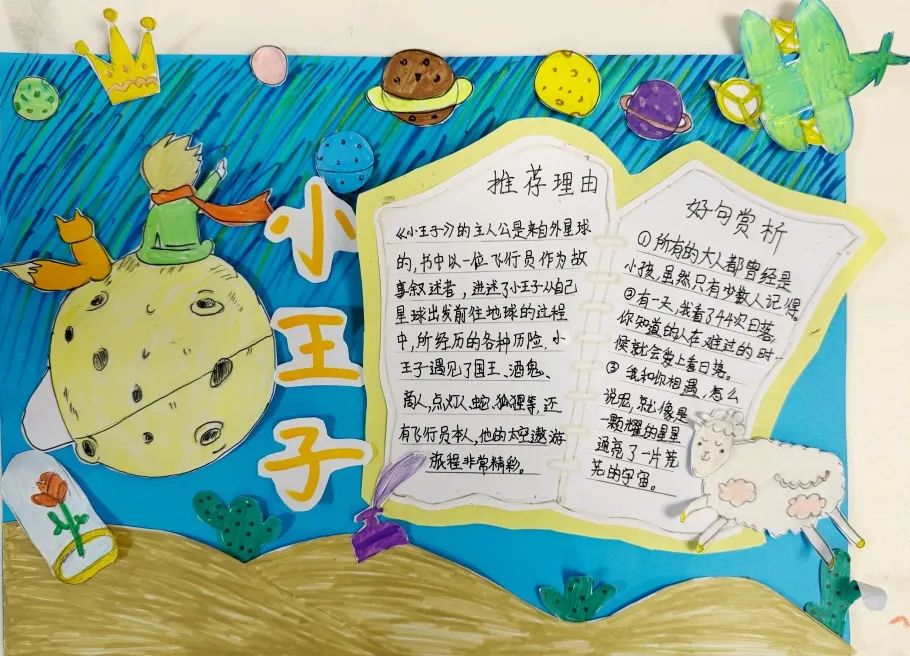 小王子
推荐理由
《小王子》的主人公是来自外星球
的,书中以一位飞行员作为故
事叙述者,讲述了小王子从自己
星球出发前往地球的过程
中,所经历的各种历险.小
王子遇见了国王、酒鬼、
商人,点灯人,蛇、狐狸等,还
有飞行员本人,他的太空遨游
旅程非常精彩。
好句赏析
①所有的大人都曾经是
小孩,虽然只有少数人记得。
②有一天,我看了44次日落,
你知道的人在难过的时
候就会爱上看日落。
③我和你相遇,怎么
说呢,就像是
一颗耀的星星
通亮了一片荒
芜的宇宙。